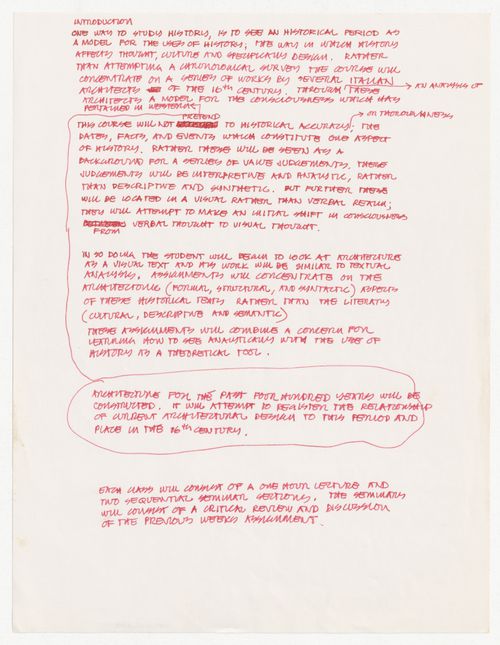 INTRODUCTION
ONE WAY TO STUDY HISTORY, IS TO SEE AN HISTORICAL PERIOD AS
A MODEL FOR THE USES OF HISTORY; THE WAY IN WHICH HISTORY
AFFECTS THOUGHT, CULTURE AND SPECIFICALLY DESIGN. RATHER
THAN ATTEMPTING A CHRONOLOGICAL SURVEY THE COURSE WILL
CONCENTRATE ON A SERIES OF WORKS BY SEVERAL ITALIAN
ARCHITECTS OF THE 16TH CENTURY. THROUGH THESE
AN ANALYSIS OF
ARCHITECTS A MODEL FOR THE CONSCIOUSNESS WHICH HAS
PERTAINED IN WESTERN
PRETEND
OR THOROUGHNESS
THIS COURSE WILL NOT TO HISTORICAL ACCURACY; THE
DATES, FACTS, AND EVENTS WHICH CONSTITUTE ONE ASPECT
OF HISTORY. RATHER THESE WILL BE SEEN AS A
BACKGROUND FOR A SERIES OF VALUE JUDGEMENTS. THESE
JUDGEMENTS WILL BE INTERPRETIVE AND ANALYTIC, RATHER
THAN DESCRIPTIVE AND SYNTHETIC. BUT FURTHER THESE
WILL BE LOCATED IN A VISUAL RATHER THAN VERBAL REALM;
THEY WILL ATTEMPT TO MAKE AN INITIAL SHIFT IN CONSCIOUSNESS
VERBAL THOUGHT TO VISUAL THOUGHT.
FROM
IN SO DOING THE STUDENT WILL BEGIN TO LOOK AT ARCHITECTURE
AS A VISUAL TEXT AND HIS WORK WILL BE SIMILAR TO TEXTUAL
ANALYSIS. ASSIGNMENTS WILL CONCENTRATE ON THE
ARCHITECTONIC (FORMAL, STRUCTURAL, AND SYNTACTIC) ASPECTS
OF THESE HISTORICAL TEXTS RATHER THAN THE LITERARY
(CULTURAL, DESCRIPTIVE AND SEMANTIC)
THESE ASSIGNMENTS WILL COMBINE A CONCERN FOR
LEARNING HOW TO SEE ANALYTICALLY WITH THE USE OF
HISTORY AS A THEORETICAL TOOL.
ARCHITECTURE FOR THE PAST FOUR HUNDRED YEARS WILL BE
CONSTRUCTED. IT WILL ATTEMPT TO REGISTER THE RELATIONSHIP
OF CURRENT ARCHITECTURAL DESIGN TO THIS PERIOD AND
PLACE IN THE 16TH CENTURY.
EACH CLASS WILL CONSIST OF A ONE HOUR LECTURE AND
TWO SEQUENTIAL SEMINAR SECTIONS. THE SEMINARS
WILL CONSIST OF A CRITICAL REVIEW AND DISCUSSION
OF THE PREVIOUS WEEKS ASSIGNMENT.